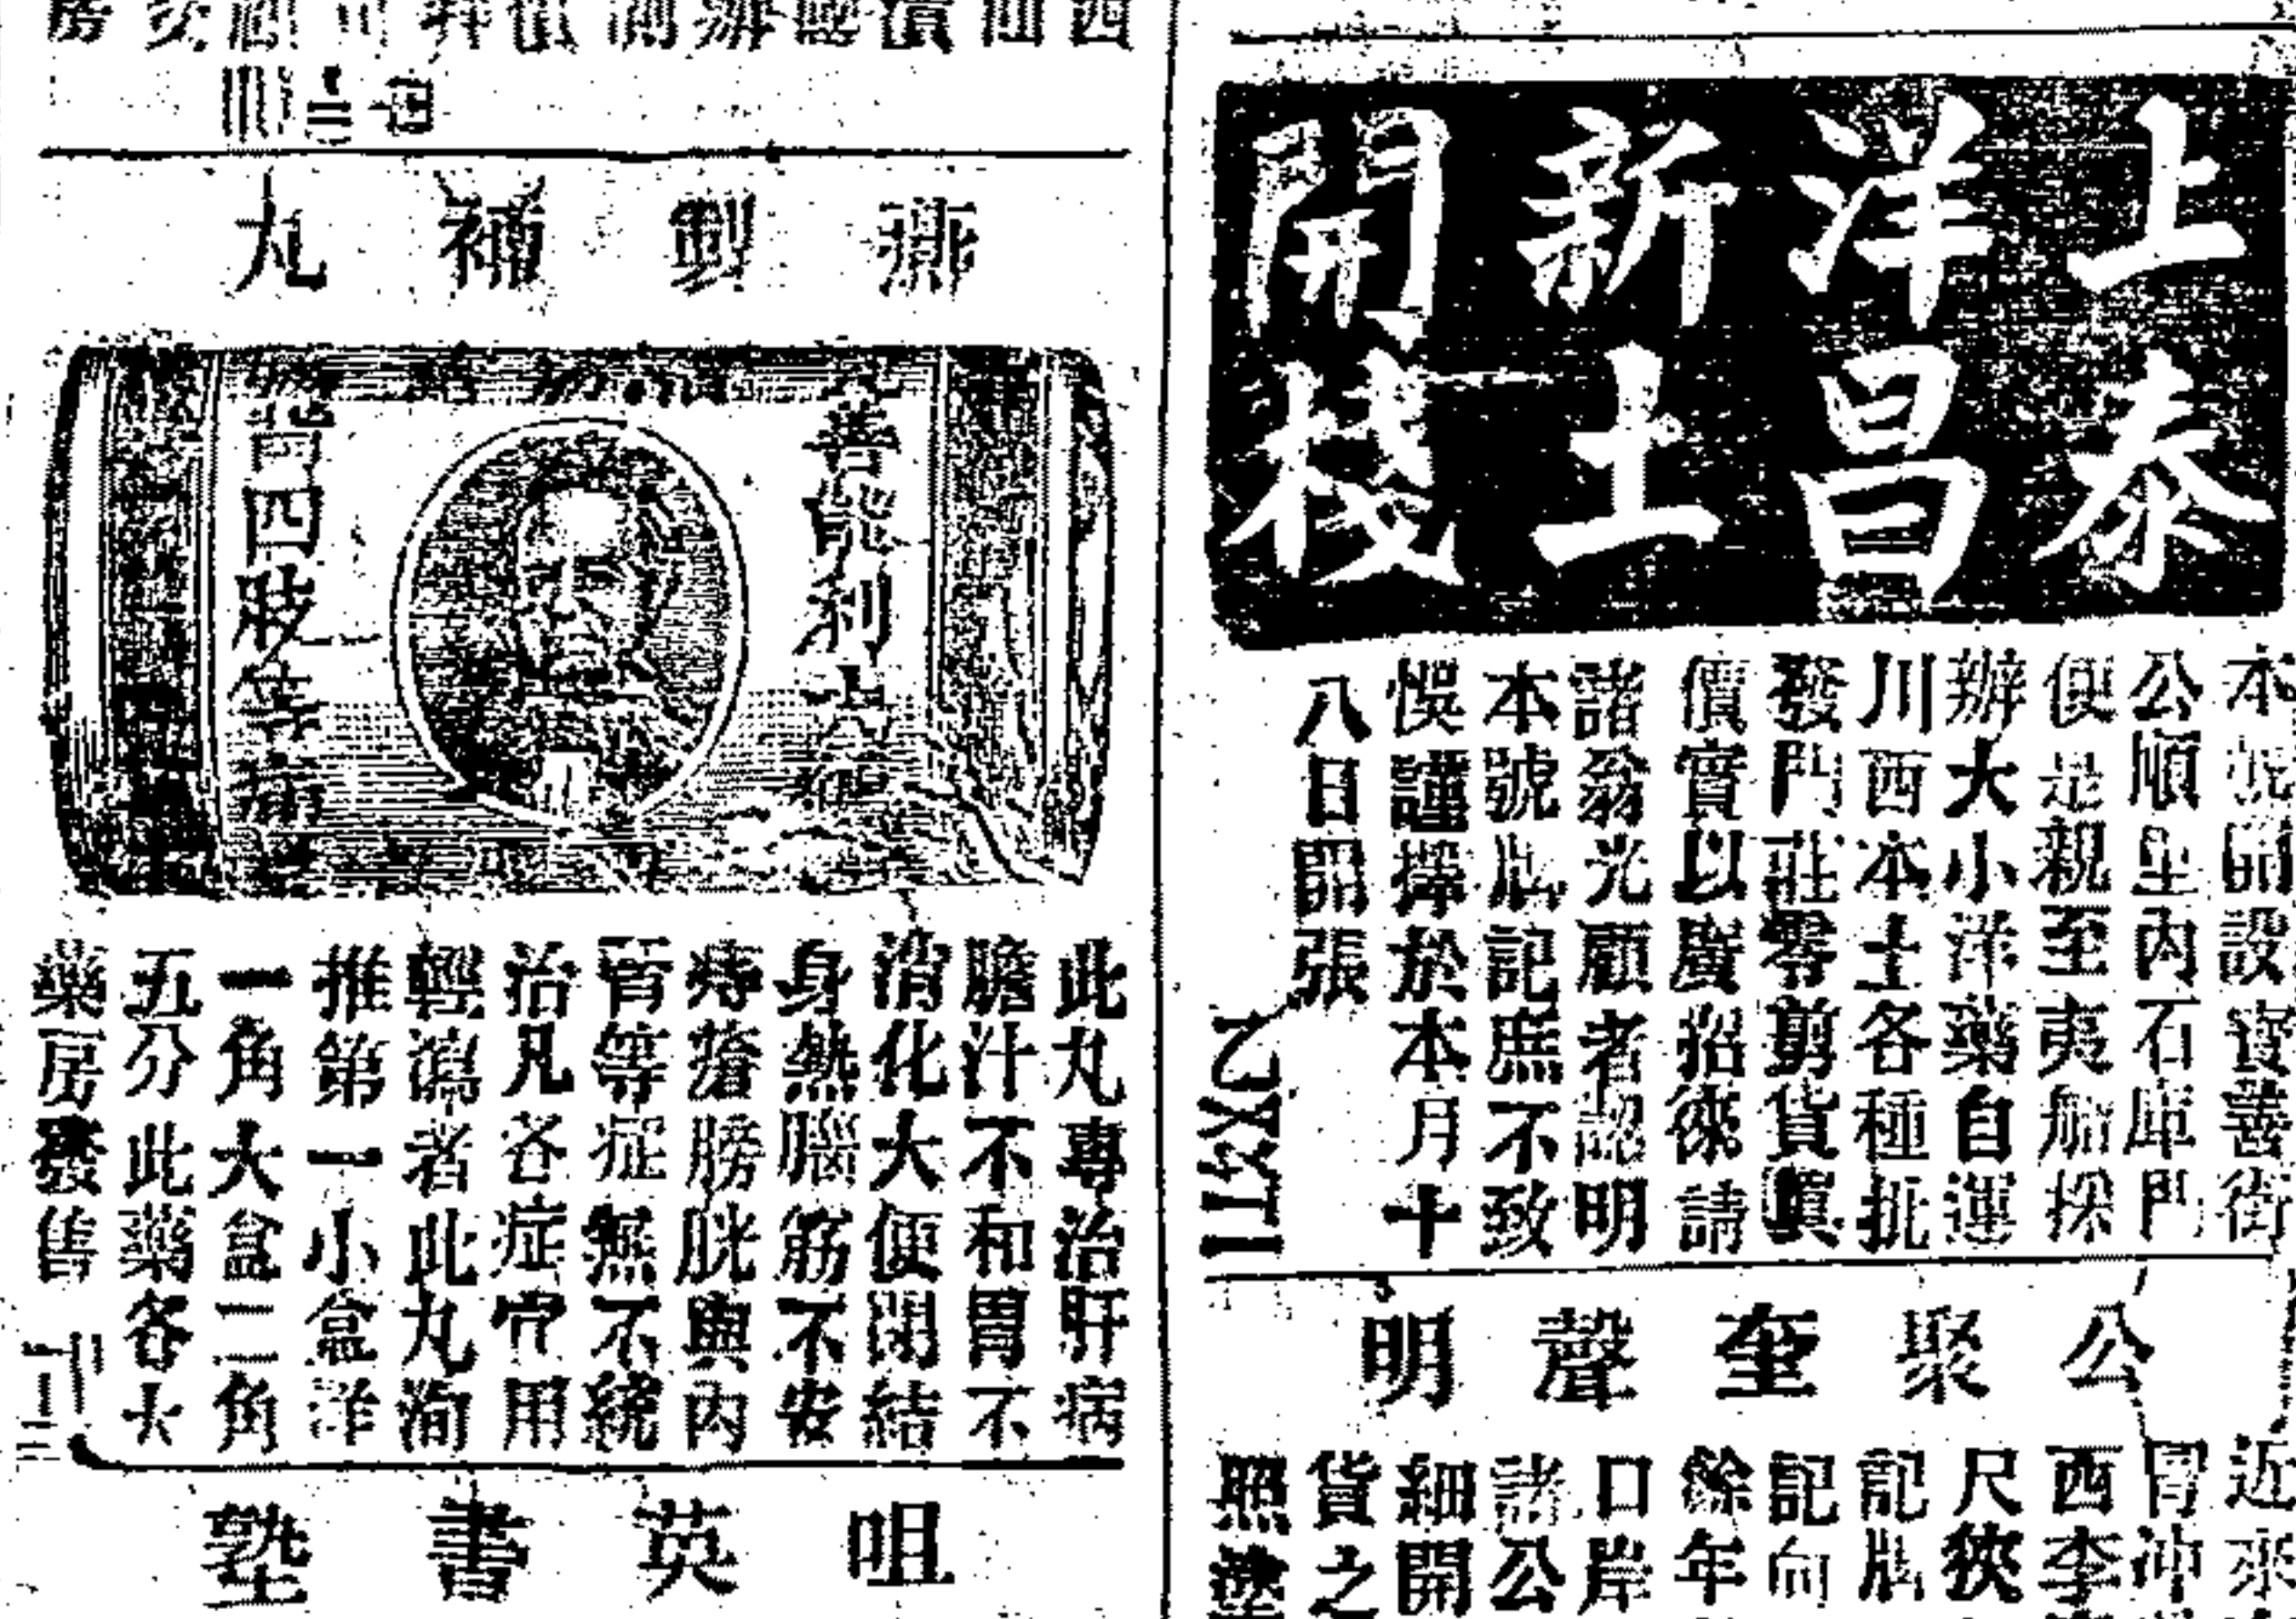 上洋新開
泰昌土棧
本號開設寶善街
公順里內石庫門
便是親至夷船採
辦大小洋藥自運
川西本土各種批
發門莊零剪貨真
價實以廣招徠請
諸翁光顧者認明
本號牌記庶不致
悞謹擇於本月十
八日開張
公聚奎聲明
近來
冒沖
西李
尺狹
記牌
記向
餘年
口岸
諸公
細開
貨之
照
製補丸
善能利
四肢等
此丸專治肝病
膽汁不和胃不
消化大便閉結
身熱腦筋不安
痔瘡膀胱與內
腎等症無不統
治凡各症宜用
輕瀉者此丸洵
推第一小盒洋
一角大盒二角
五分此藥各大
藥房發售
咀英書塾